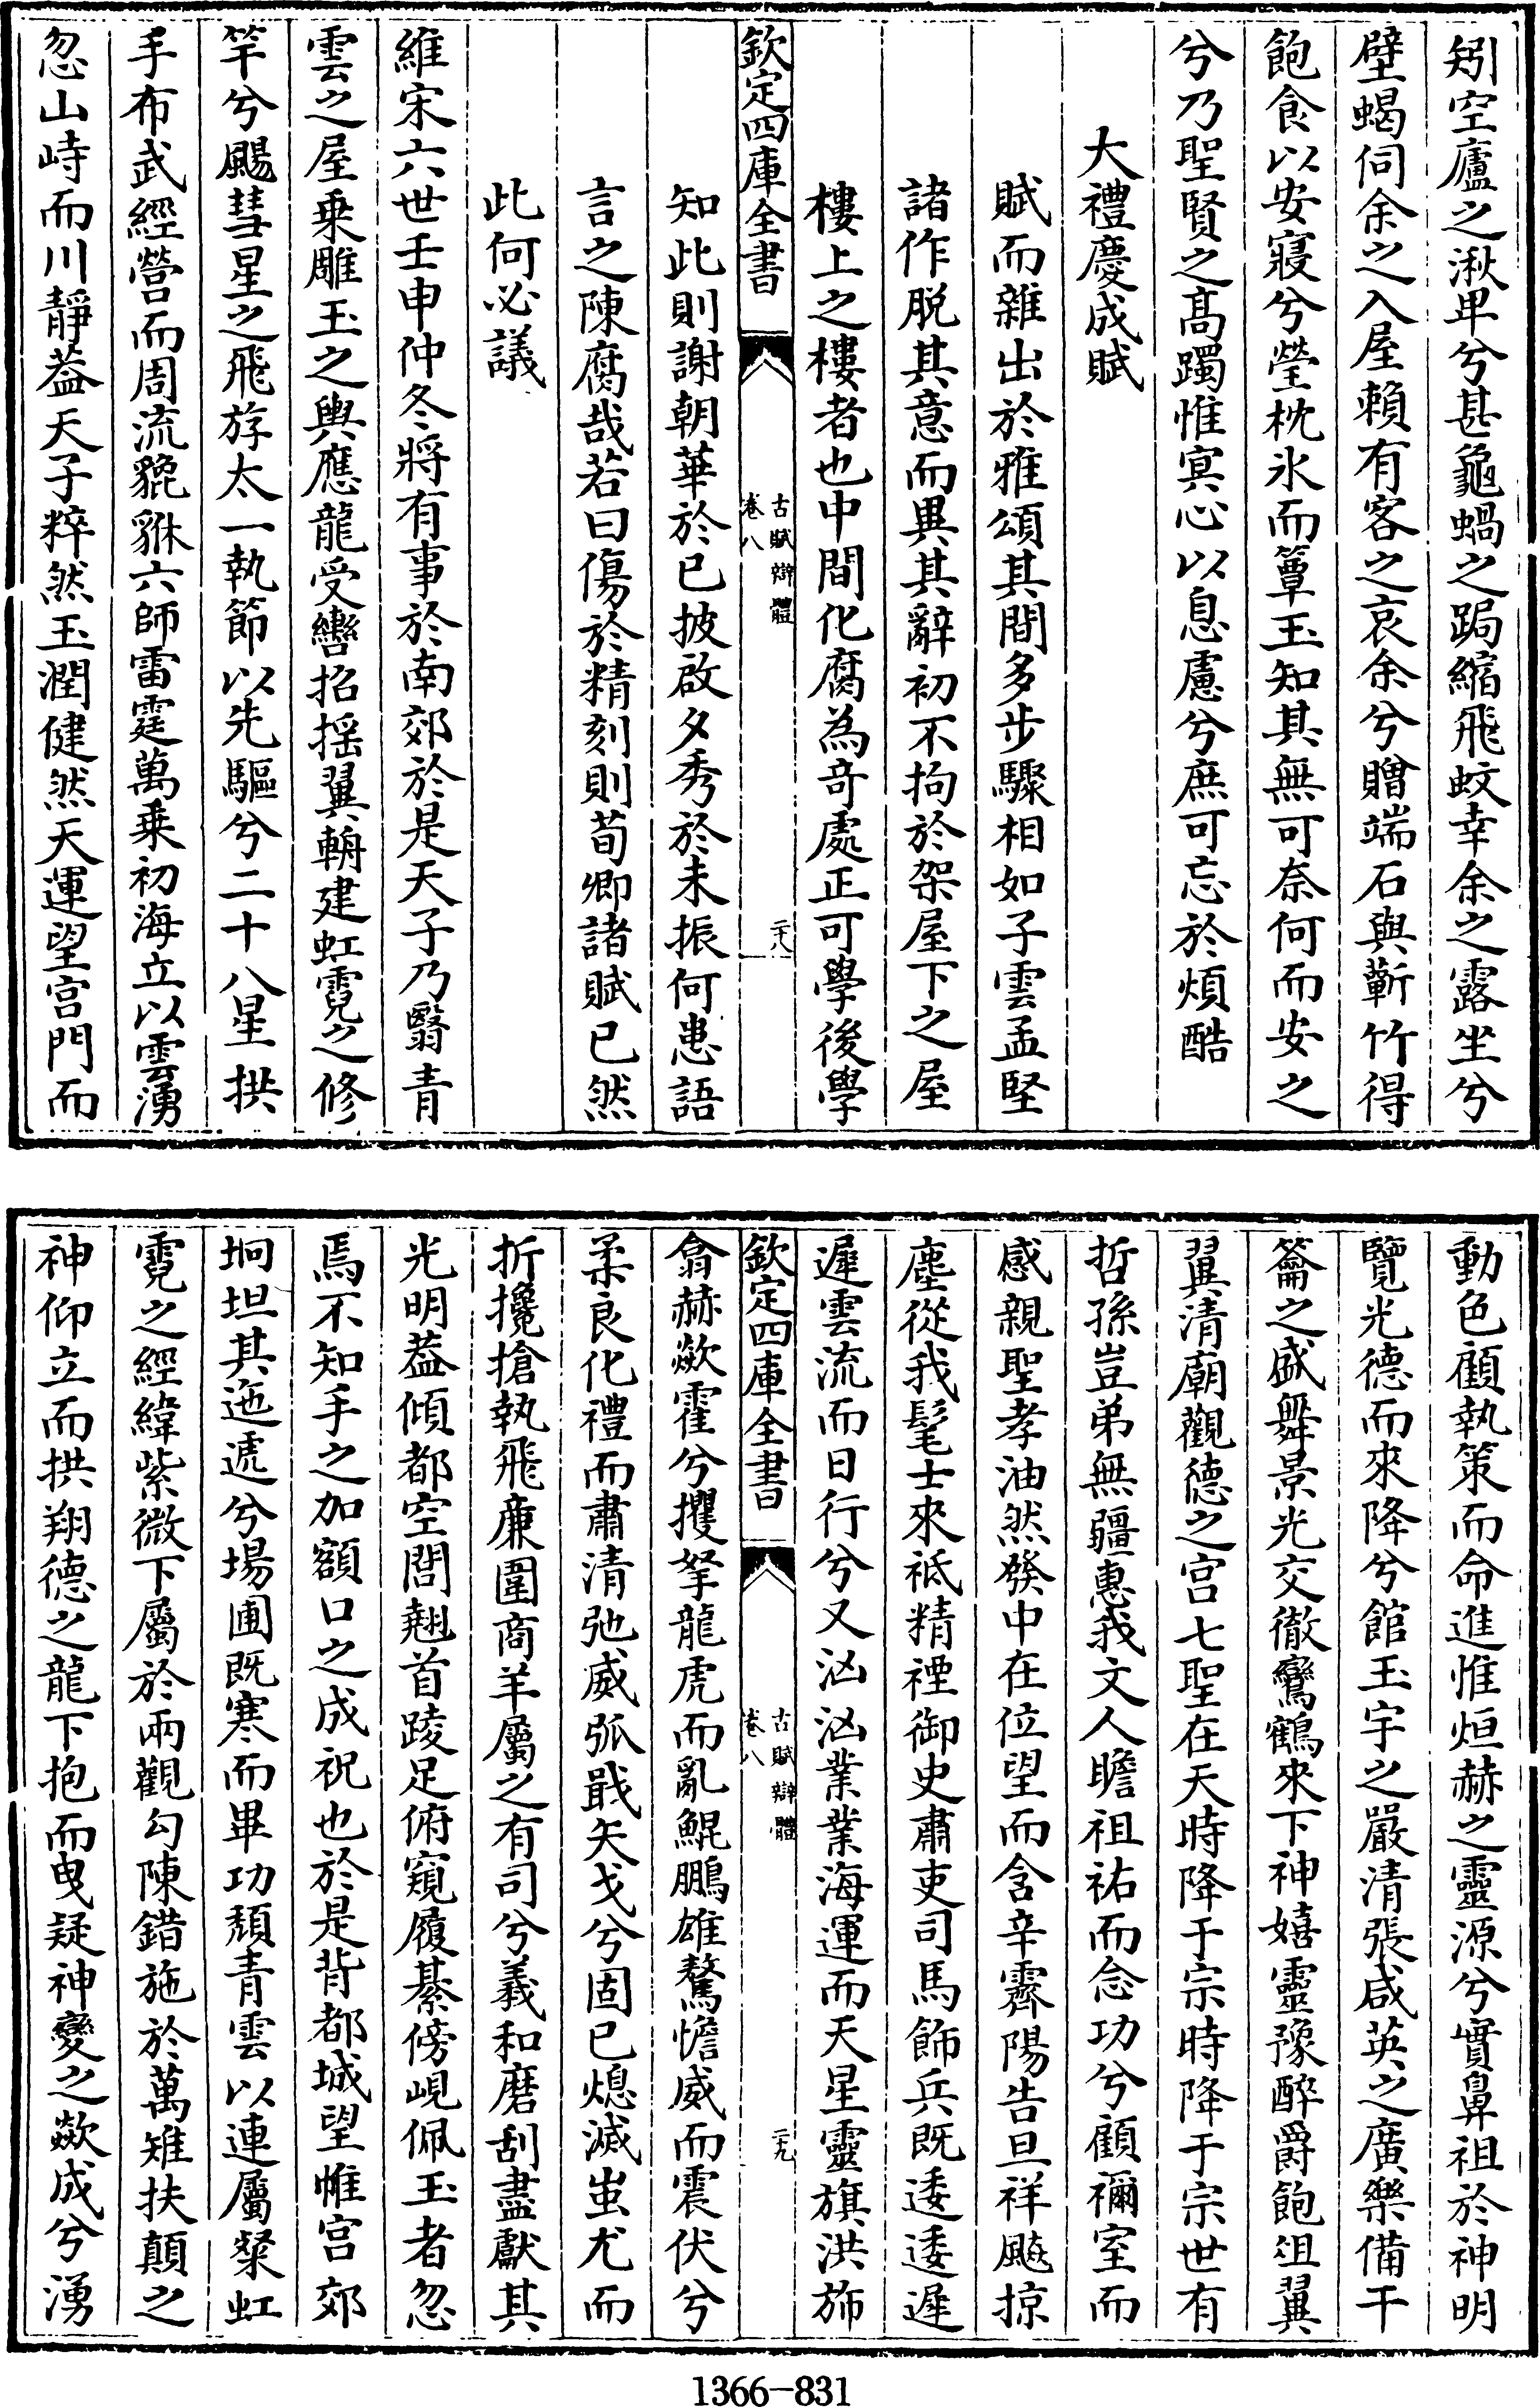 矧空廬之湫卑兮甚龜蝸之跼縮飛蚊幸余之露坐兮
壁蝎伺余之入屋賴有客之哀余兮贈端石與蘄竹得
飽食以安寢兮瑩枕氷而簟玉知其無可奈何而安之
兮乃聖賢之高躅惟㝠心以息慮兮庶可忘於煩酷
大禮慶成賦
賦而雜出於雅頌其間多步驟相如子雲孟堅
諸作脱其意而異其辭初不拘於架屋下之屋
樓上之樓者也中間化腐為竒處正可學後學
欽定四庫全書
古賦辯體
卷八
二十八
知此則謝朝華於已披啟夕秀於未振何患語
言之陳腐哉若曰傷於精刻則荀卿諸賦已然
此何必議
維宋六世壬申仲冬將有事於南郊於是天子乃翳青
雲之屋乗雕玉之輿應龍受轡招揺翼輈建虹霓之修
竿兮颺彗星之飛斿太一執節以先驅兮二十八星拱
手布武經營而周流貔貅六師雷霆萬乗初海立以雲湧
忽山峙而川靜葢天子粹然玉潤健然天運望宫門而
動色顧執策而命進惟烜赫之靈源兮實鼻祖於神明
覽光德而來降兮館玉宇之嚴清張咸英之廣樂備干
籥之盛舞景光交徹鸞鶴來下神嬉靈豫醉爵飽俎翼
翼清廟觀德之宫七聖在天時降于宗時降于宗世有
哲孫豈弟無疆惠我文人瞻祖祐而念功兮顧禰室而
感親聖孝油然發中在位望而含辛霽陽告旦祥飇掠
塵從我髦士來祗精禋御史肅吏司馬飾兵既逶逶遲
遲雲流而日行兮又汹汹業業海運而天星靈旗洪斾
欽定四庫全書
古賦辯體
卷八
二十九
翕赫歘霍兮攫拏龍虎而亂鯤鵬雄驁憺威而震伏兮
柔良化禮而肅清弛威弧戢矢戈兮固已熄滅蚩尤而
折攙搶執飛廉圉商羊屬之有司兮羲和磨刮盡獻其
光明葢傾都空閭翹首踜足俯窺履綦傍峴佩玉者忽
焉不知手之加額口之成祝也於是背都城望帷宫郊
坰坦其迤遞兮場圃既寒而畢功頽青雲以連屬粲虹
霓之經緯紫微下屬於兩觀勾陳錯施於萬雉扶顛之
神仰立而拱翔德之龍下抱而曳疑神變之歘成兮湧
1366-831